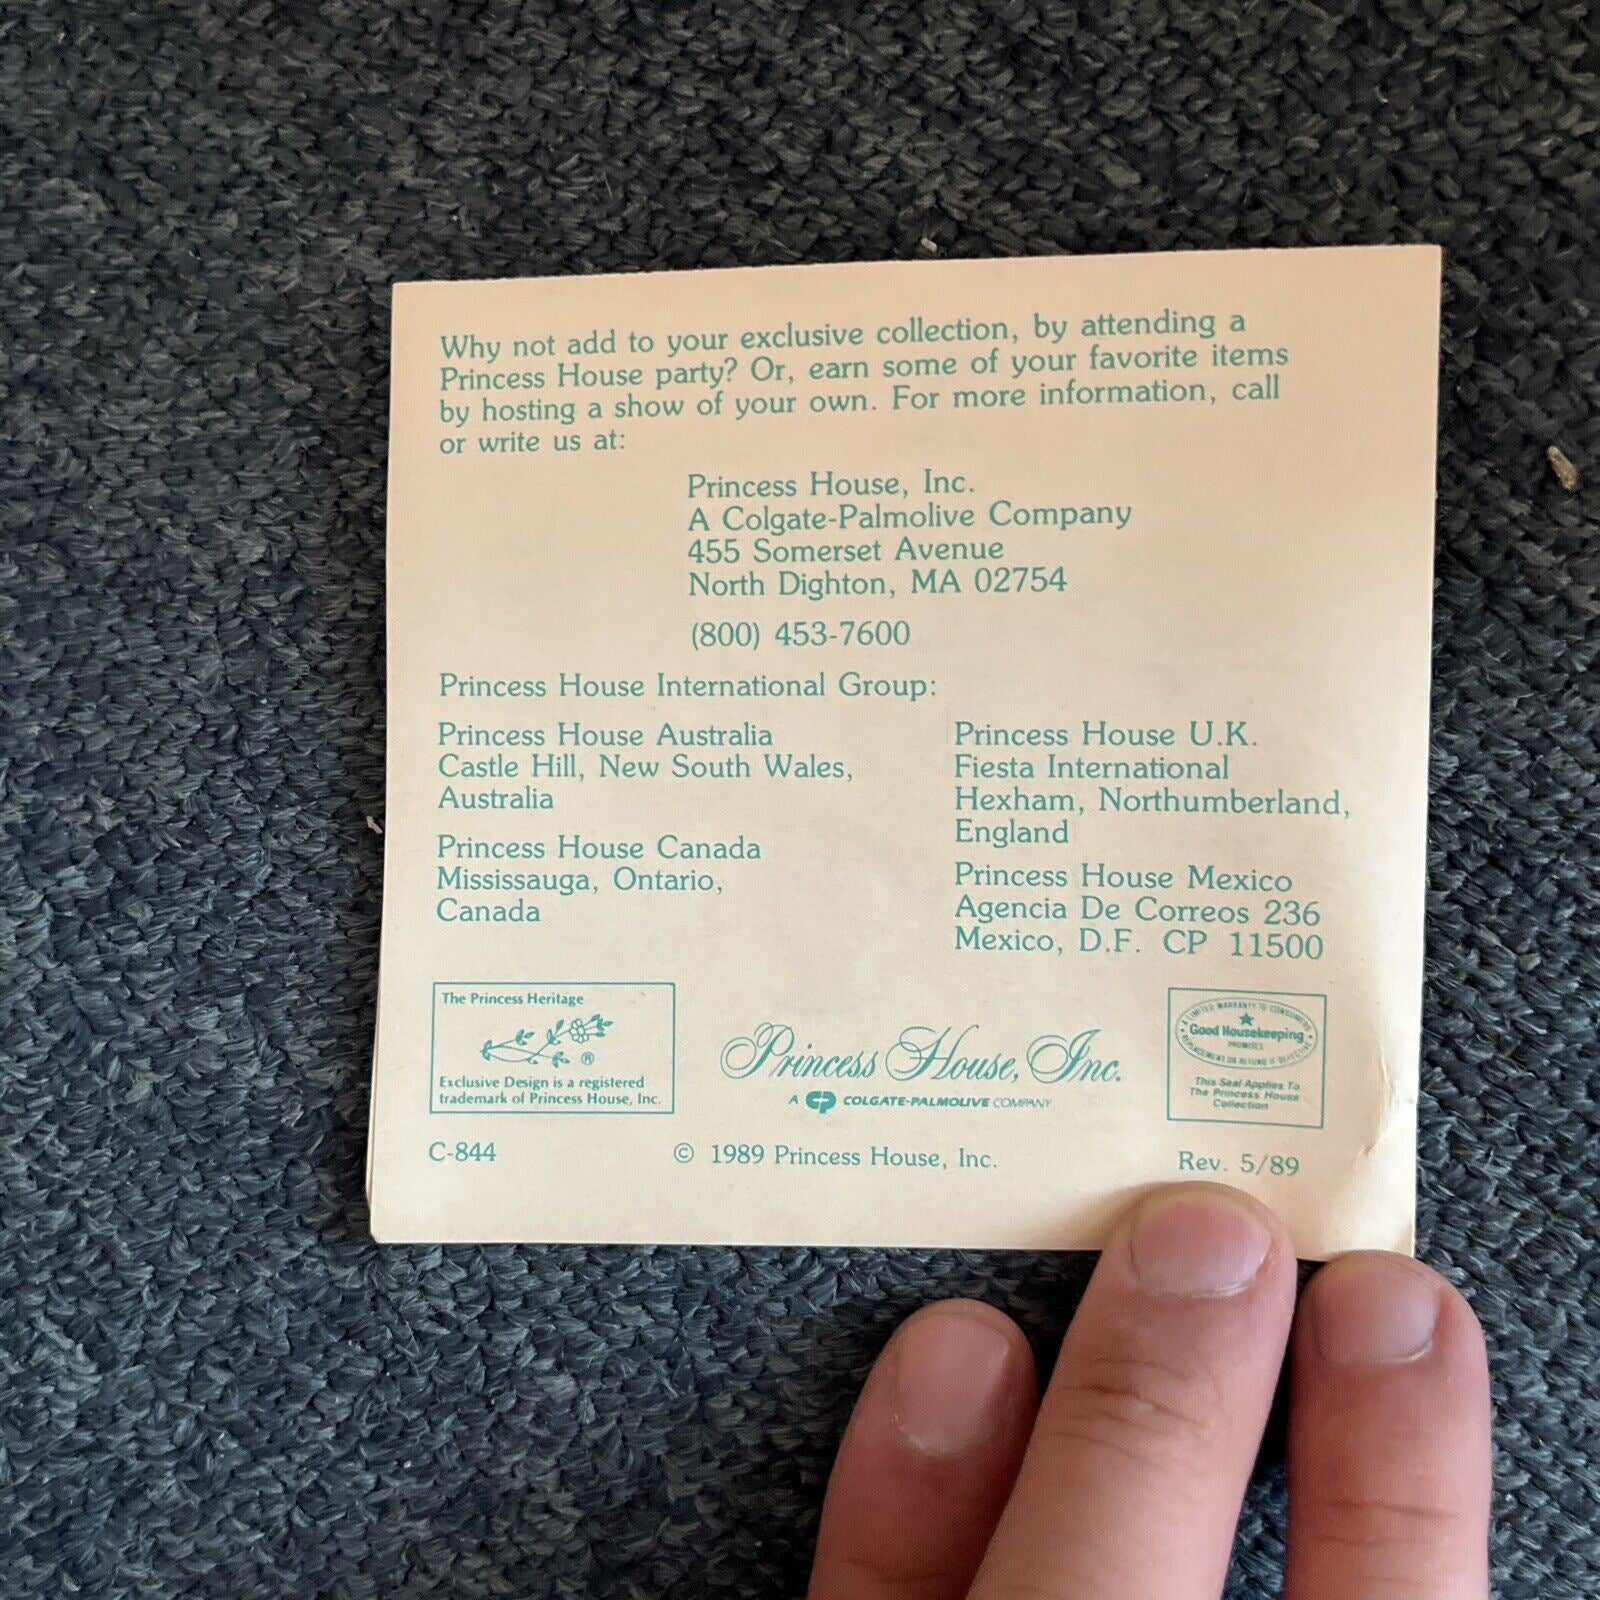 Why not add to your exclusive collection, by attending a
Princess House party? Or, earn some of your favorite items
by hosting a show of your own. For more information, call
or write us at:
Princess House, Inc.
A Colgate-Palmolive Company
455 Somerset Avenue
North Dighton, MA 02754
(800) 453-7600
Princess House International Group:
Princess House Australia
Castle Hill, New South Wales,
Australia
Princess House Canada
Mississauga, Ontario,
Canada
Princess House U.K.
Fiesta International
Hexham, Northumberland,
England
Princess House Mexico
Agencia De Correos 236
Mexico, D.F. CP 11500
The Princess Heritage
®
Exclusive Design is a registered
trademark of Princess House, Inc.
Princess House, Inc.
A CP COLGATE-PALMOLIVE COMPANY
A LIMITED WARRANTY TO CONSUMERS
Good Housekeeping
PROMISES
REPLACEMENT OR REFUND IF DEFECTIVE
This Seal Applies To
The Princess House
Collection
C-844
© 1989 Princess House, Inc.
Rev. 5/89